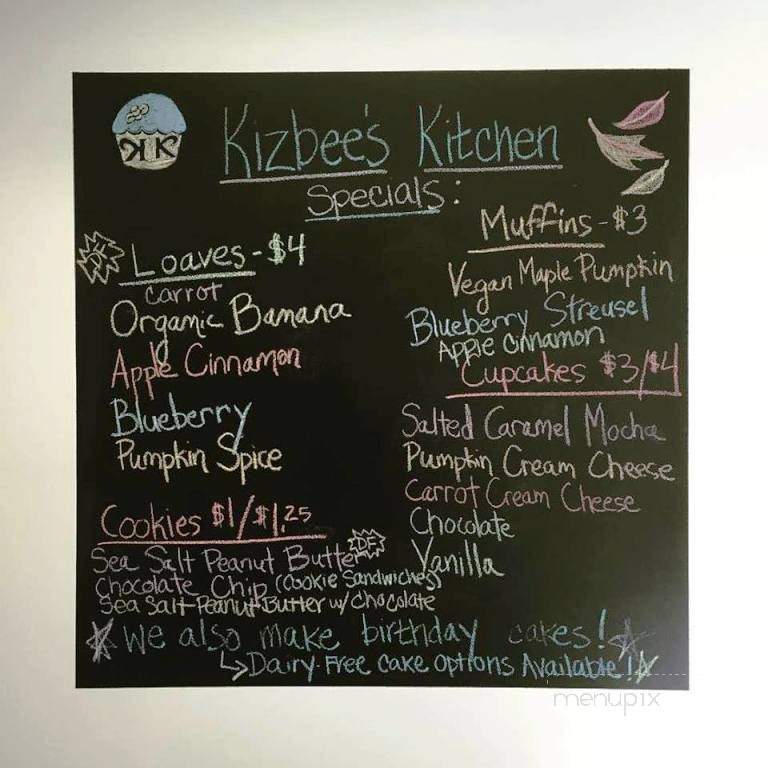 KK
Kizbee's Kitchen
Specials:
DF
Loaves - $4
Carrot
Organic Banana
Apple Cinnamon
Blueberry
Pumpkin Spice
Cookies $1/$1.25
Sea Salt Peanut Butter DF
Chocolate Chip (Cookie Sandwiches)
Sea Salt Peanut Butter w/ Chocolate
Muffins - $3
Vegan Maple Pumpkin
Blueberry Streusel
Apple Cinnamon
Cupcakes $3/$4
Salted Caramel Mocha
Pumpkin Cream Cheese
Carrot Cream Cheese
Chocolate
Vanilla
We also make birthday cakes!
Dairy-Free Cake Options Available!
menupix